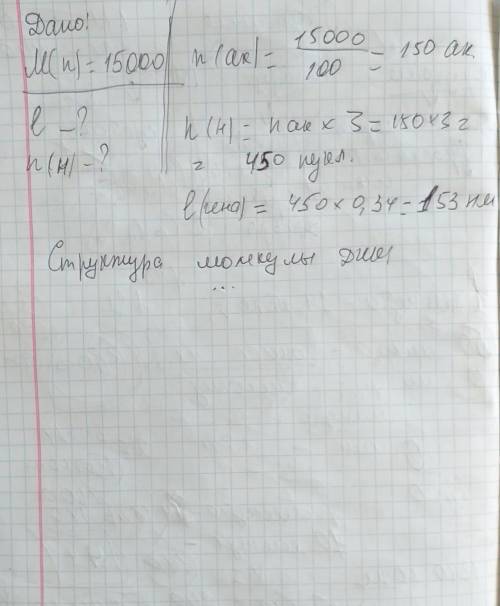 Дано:
M(п) = 15000
n(ак) = 15000/100 = 150 ак.
l - ?
n(н) - ?
n(н) = n ак x 3 = 150 x 3 =
= 450 нукл.
l(гена) = 450 x 0,34 = 153 нм
Структура молекулы ДНК
...